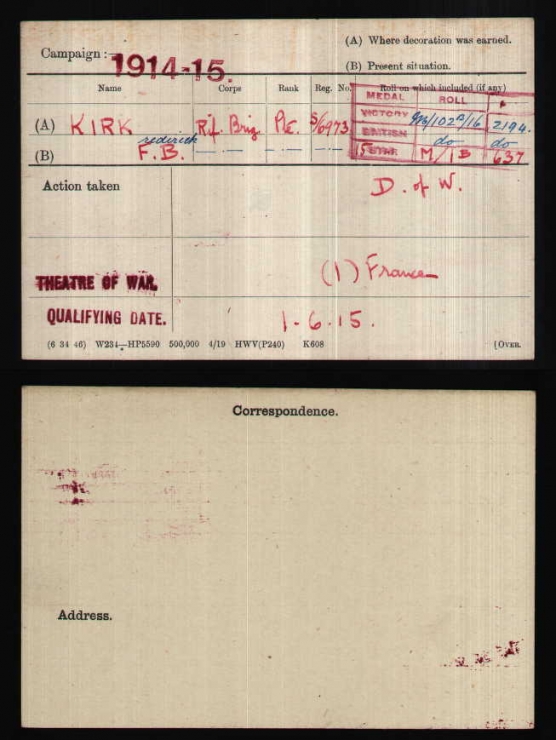 (A) Where decoration was earned.
Campaign :— 1914-15.
(B) Present situation.
Name Corps Rank Reg. No. Roll on which included (if any)
MEDAL ROLL
(A) KIRK Rif. Brig Pte. S/6973 VICTORY 102B/16 2194.
redirick BRITISH do do
(B) F.B. 15 STAR M/1B 637
Action taken D. of W.
THEATRE OF WAR. (1) France
QUALIFYING DATE. 1-6-15.
(6 34 46) W234—HP5590 500,000 4/19 HWV(P240) K608 [OVER.
Correspondence.
Address.